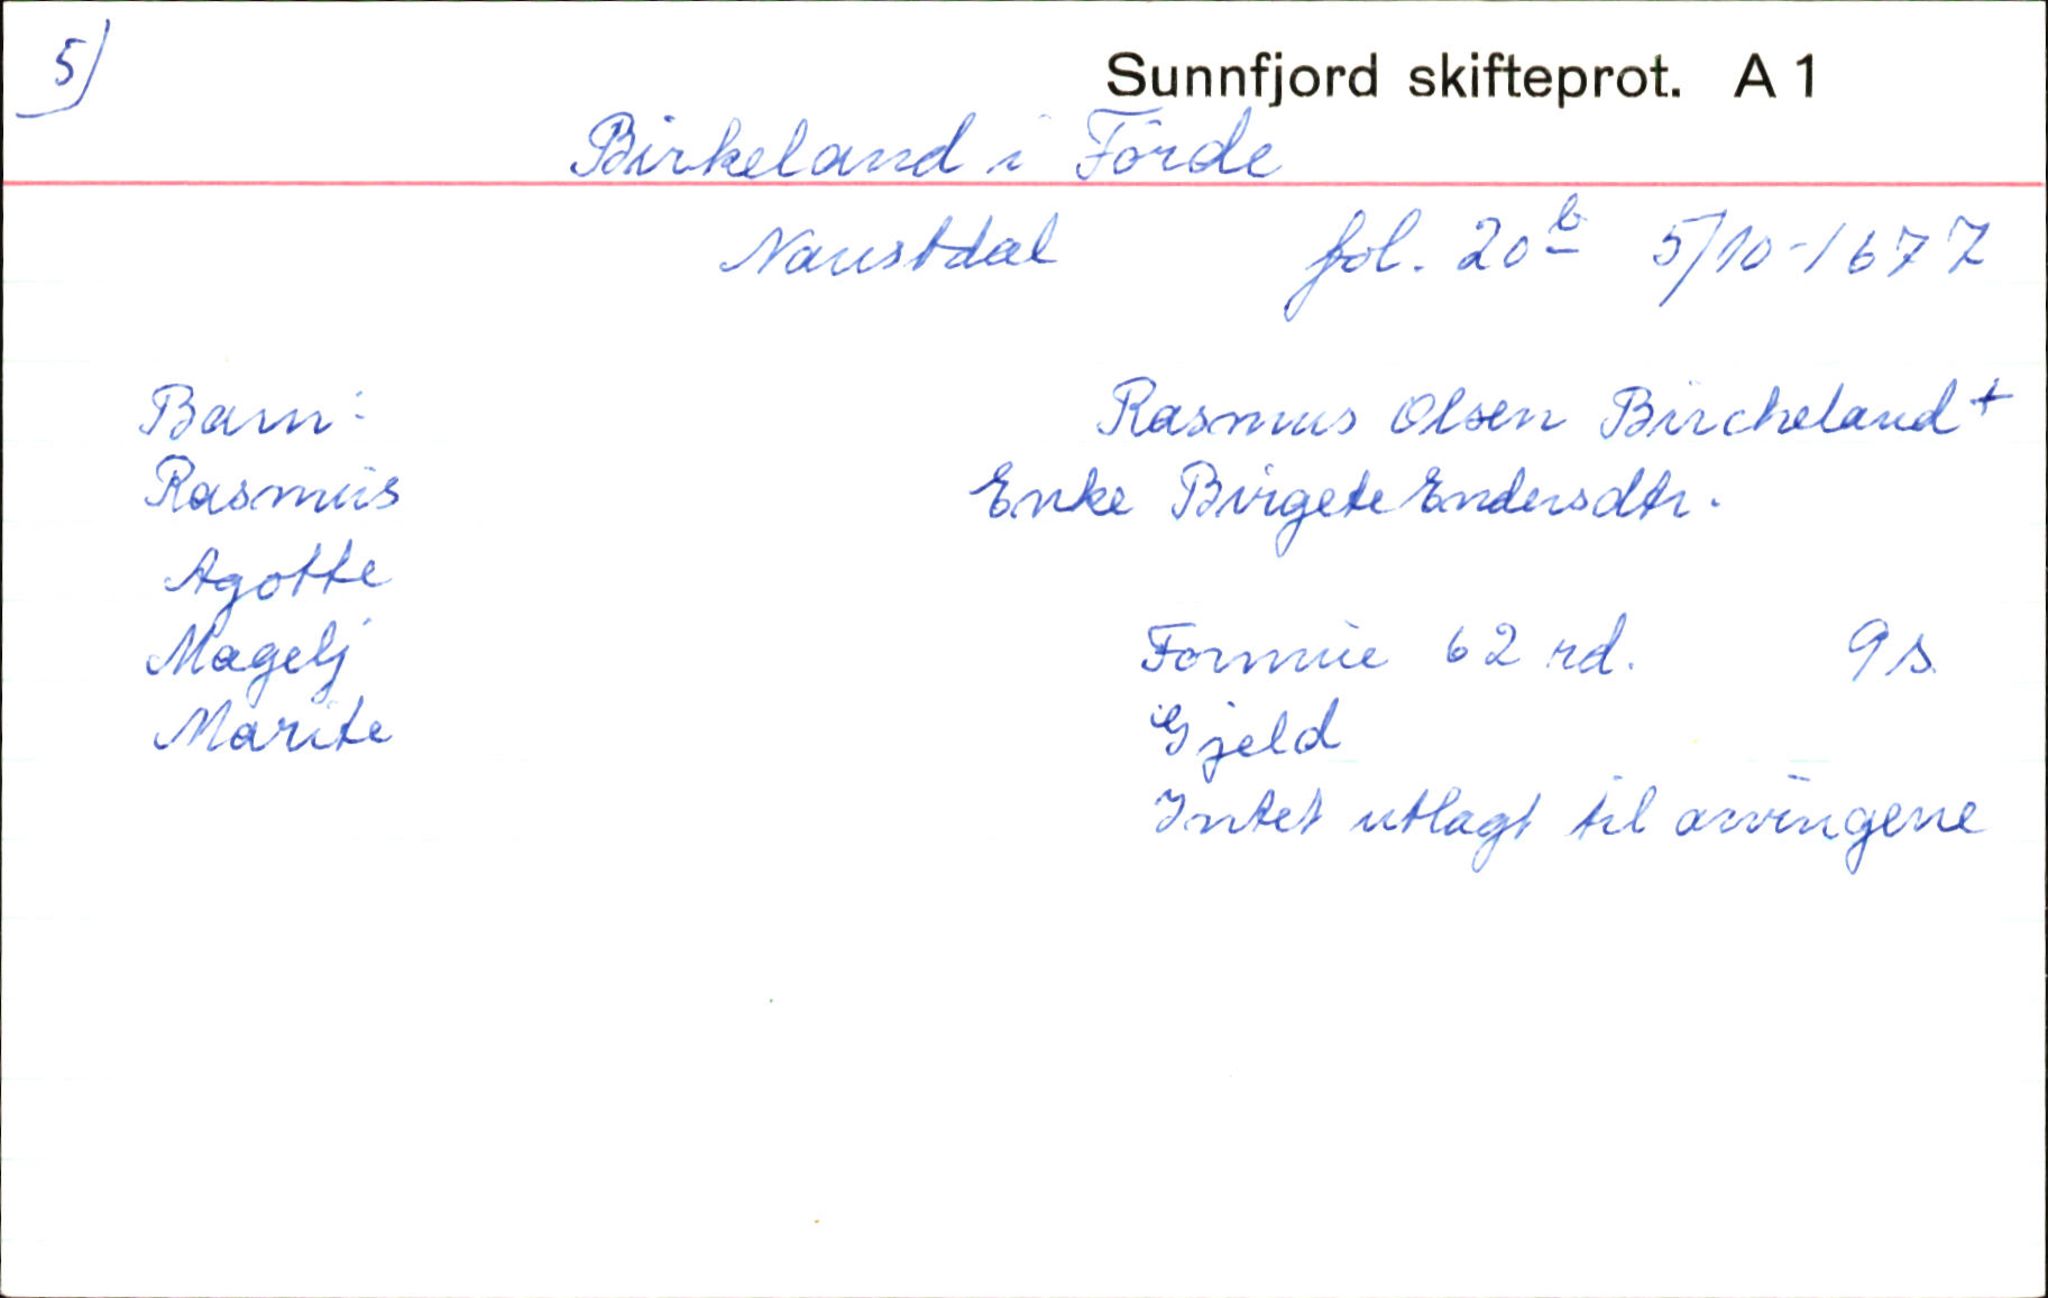 5)
Sunnfjord skifteprot. A 1
Birkeland i Förde
Naustdal fol. 20b 5/10-1677
Barn: Rasmus Olsen Bircheland +
Rasmus Enke Birgete Endersdtr.
Agotte
Magelj Formue 62 rd. 9 s.
Marite Gjeld
Intet utlagt til arvingene